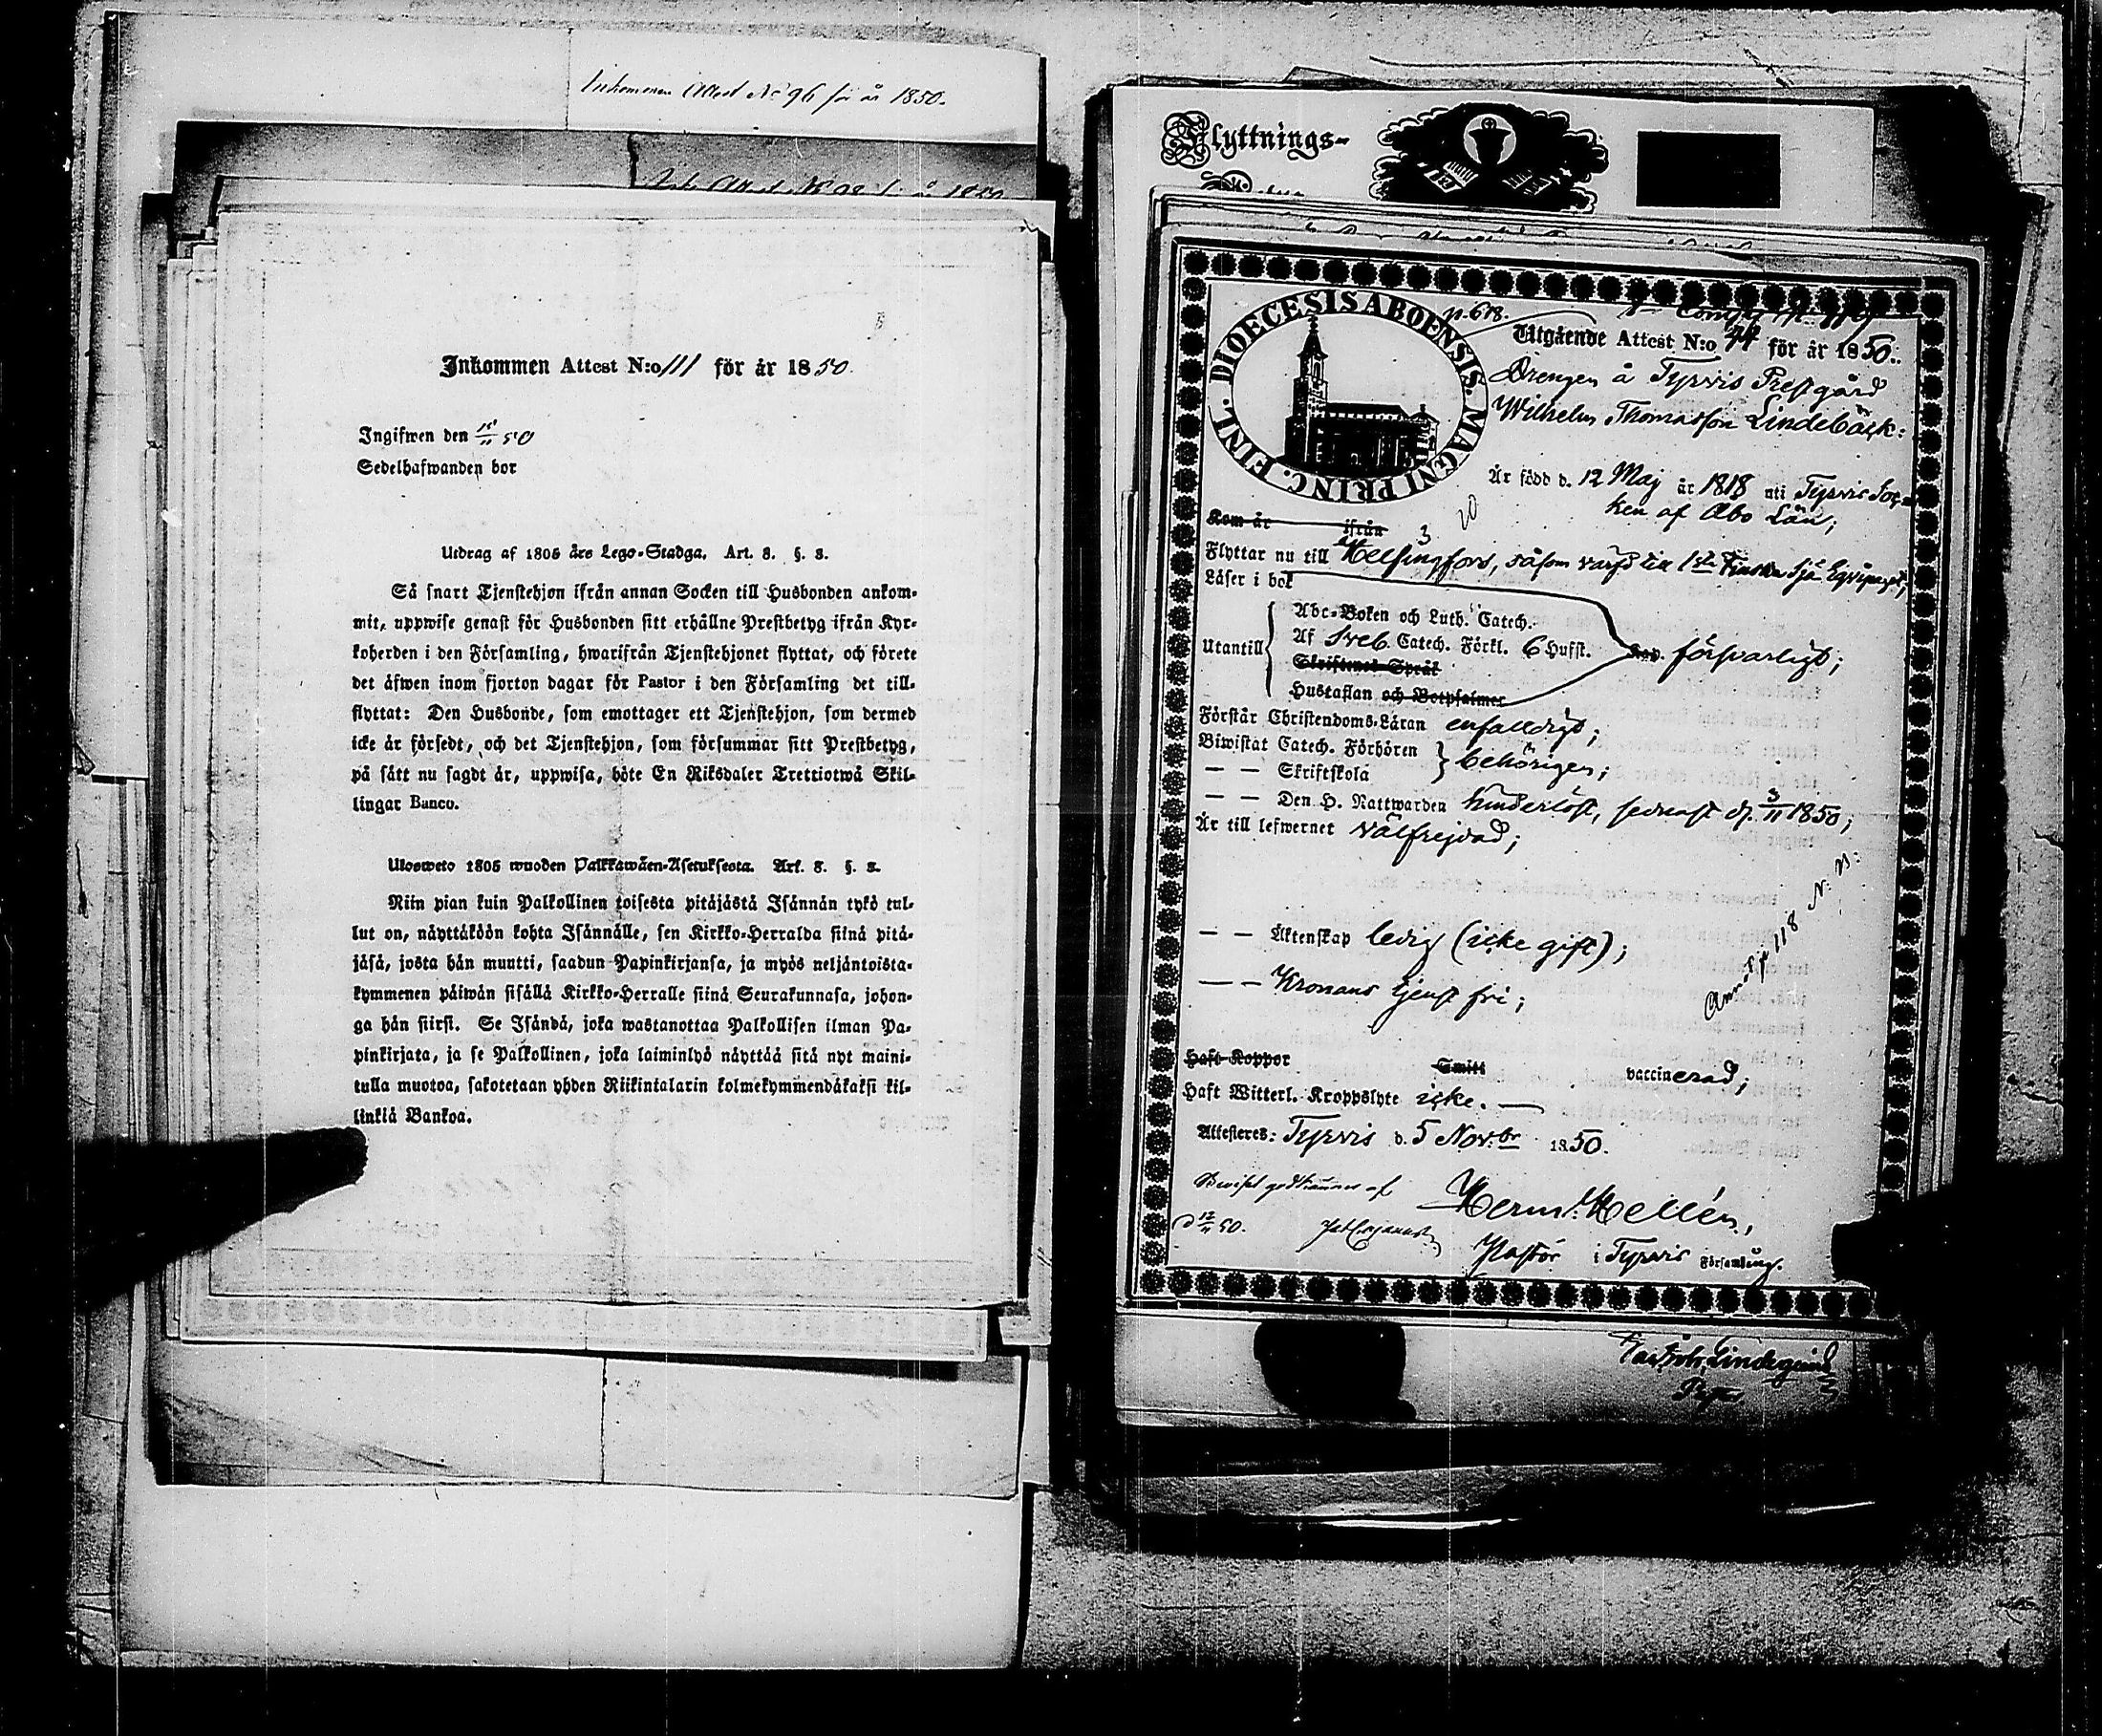 Inkommen Attest No 96 för år 1850.
Inkommen Attest N:o 111 för år 1850.
Ingifwen den 15/11 50
Sedelhafwanden bor
Utdrag af 1805 års Lego-Stadga. Art. 3. §. 3.
Så snart Tjenstehjon ifrån annan Socken till Husbonden ankom-
mit, uppwise genast för Husbonden sitt erhållne Prestbetyg ifrån Kyr-
koherden i den Församling, hwarifrån Tjenstehjonet flyttat, och förete
det äfwen inom fjorton dagar för Pastor i den Församling det till-
flyttat: Den Husbonde, som emottager ett Tjenstehjon, som dermed
icke är försedt, och det Tjenstehjon, som försummar sitt Prestbetyg,
på sått nu sagdt är, uppwisa, böte En Riksdaler Trettiotwå Skil-
lingar Banco.
Ulosweto 1805 wuoden Palkkawäen-Asetuksesta. Art. 3. §. 3.
Niin pian kuin Palkollinen toisesta pitäjästä Isännän tykö tul-
lut on, näyttäköön kohta Isännälle, sen Kirkko-Herralda siinä pitä-
jäsä, josta hän muutti, saadun Papinkirjansa, ja myös neljäntoista-
kymmenen päiwän sisällä Kirkko-Herralle siinä Seurakunnasa, johon-
ga hän siirsi. Se Isändä, joka wastanottaa Palkollisen ilman Pa-
pinkirjata, ja se Palkollinen, joka laiminlyö näyttää sitä nyt maini-
tulla muotoa, sakotetaan yhden Riikintalarin kolmekymmendäkaksi kil-
linkiä Bankoa.
Flyttnings-
DIOECESIS ABOENSIS. MAGNI PRINC. FINL.
p. 618.
Utgående Attest N:o 44 för år 1850.
Drengen å Tyrvis Prestgård
Wilhelm Thomasson Lindebäck:
Är född d. 12 Maj år 1818 uti Tyrvis Soc-
ken af Åbo Län;
Kom år ifrån
Flyttar nu till Helsingfors, såsom värfd till 1sta Finska Sjö Eqvipaget;
Läser i bok
Utantill
Abc-Boken och Luth. Catech.
Af Sveb. Catech. Förkl. 6 Hufst. Kap. försvarligt;
Skriftenes Språk
Hustaflan och Botpsalmer
Förstår Christendoms-Läran enfaldigt;
Biwistat Catech. Förhören
— — Skriftskola behörigen;
— — Den H. Nattwarden hinderlöst, sednast d. 3/11 1850;
Är till lefwernet välfrejdad;
— — Äktenskap ledig (icke gift);
— — Kronans tjenst fri;
Annot. p. 118 N. B.
Haft Koppor Smitt vaccinerad;
Haft Witterl. Kroppslyte icke. —
Attesteres: Tyrvis d. 5 Nov:br 1850.
Beviset godkännes af
d 12/11 50.
Herm. Hellén,
Pastor i Tyrvis Församling.